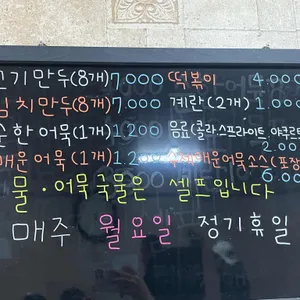 고기만두(8개) 7,000 떡볶이 4.000
김치만두(8개) 7,000 계란(2개) 1.000
순한어묵(1개) 1,200 음료(콜라스프라이트,야쿠르트
2.00
매운어묵(1개) 1,200 매운어묵소스(포장
6.00
물·어묵국물은 셀프입니다
매주 월요일 정기휴일